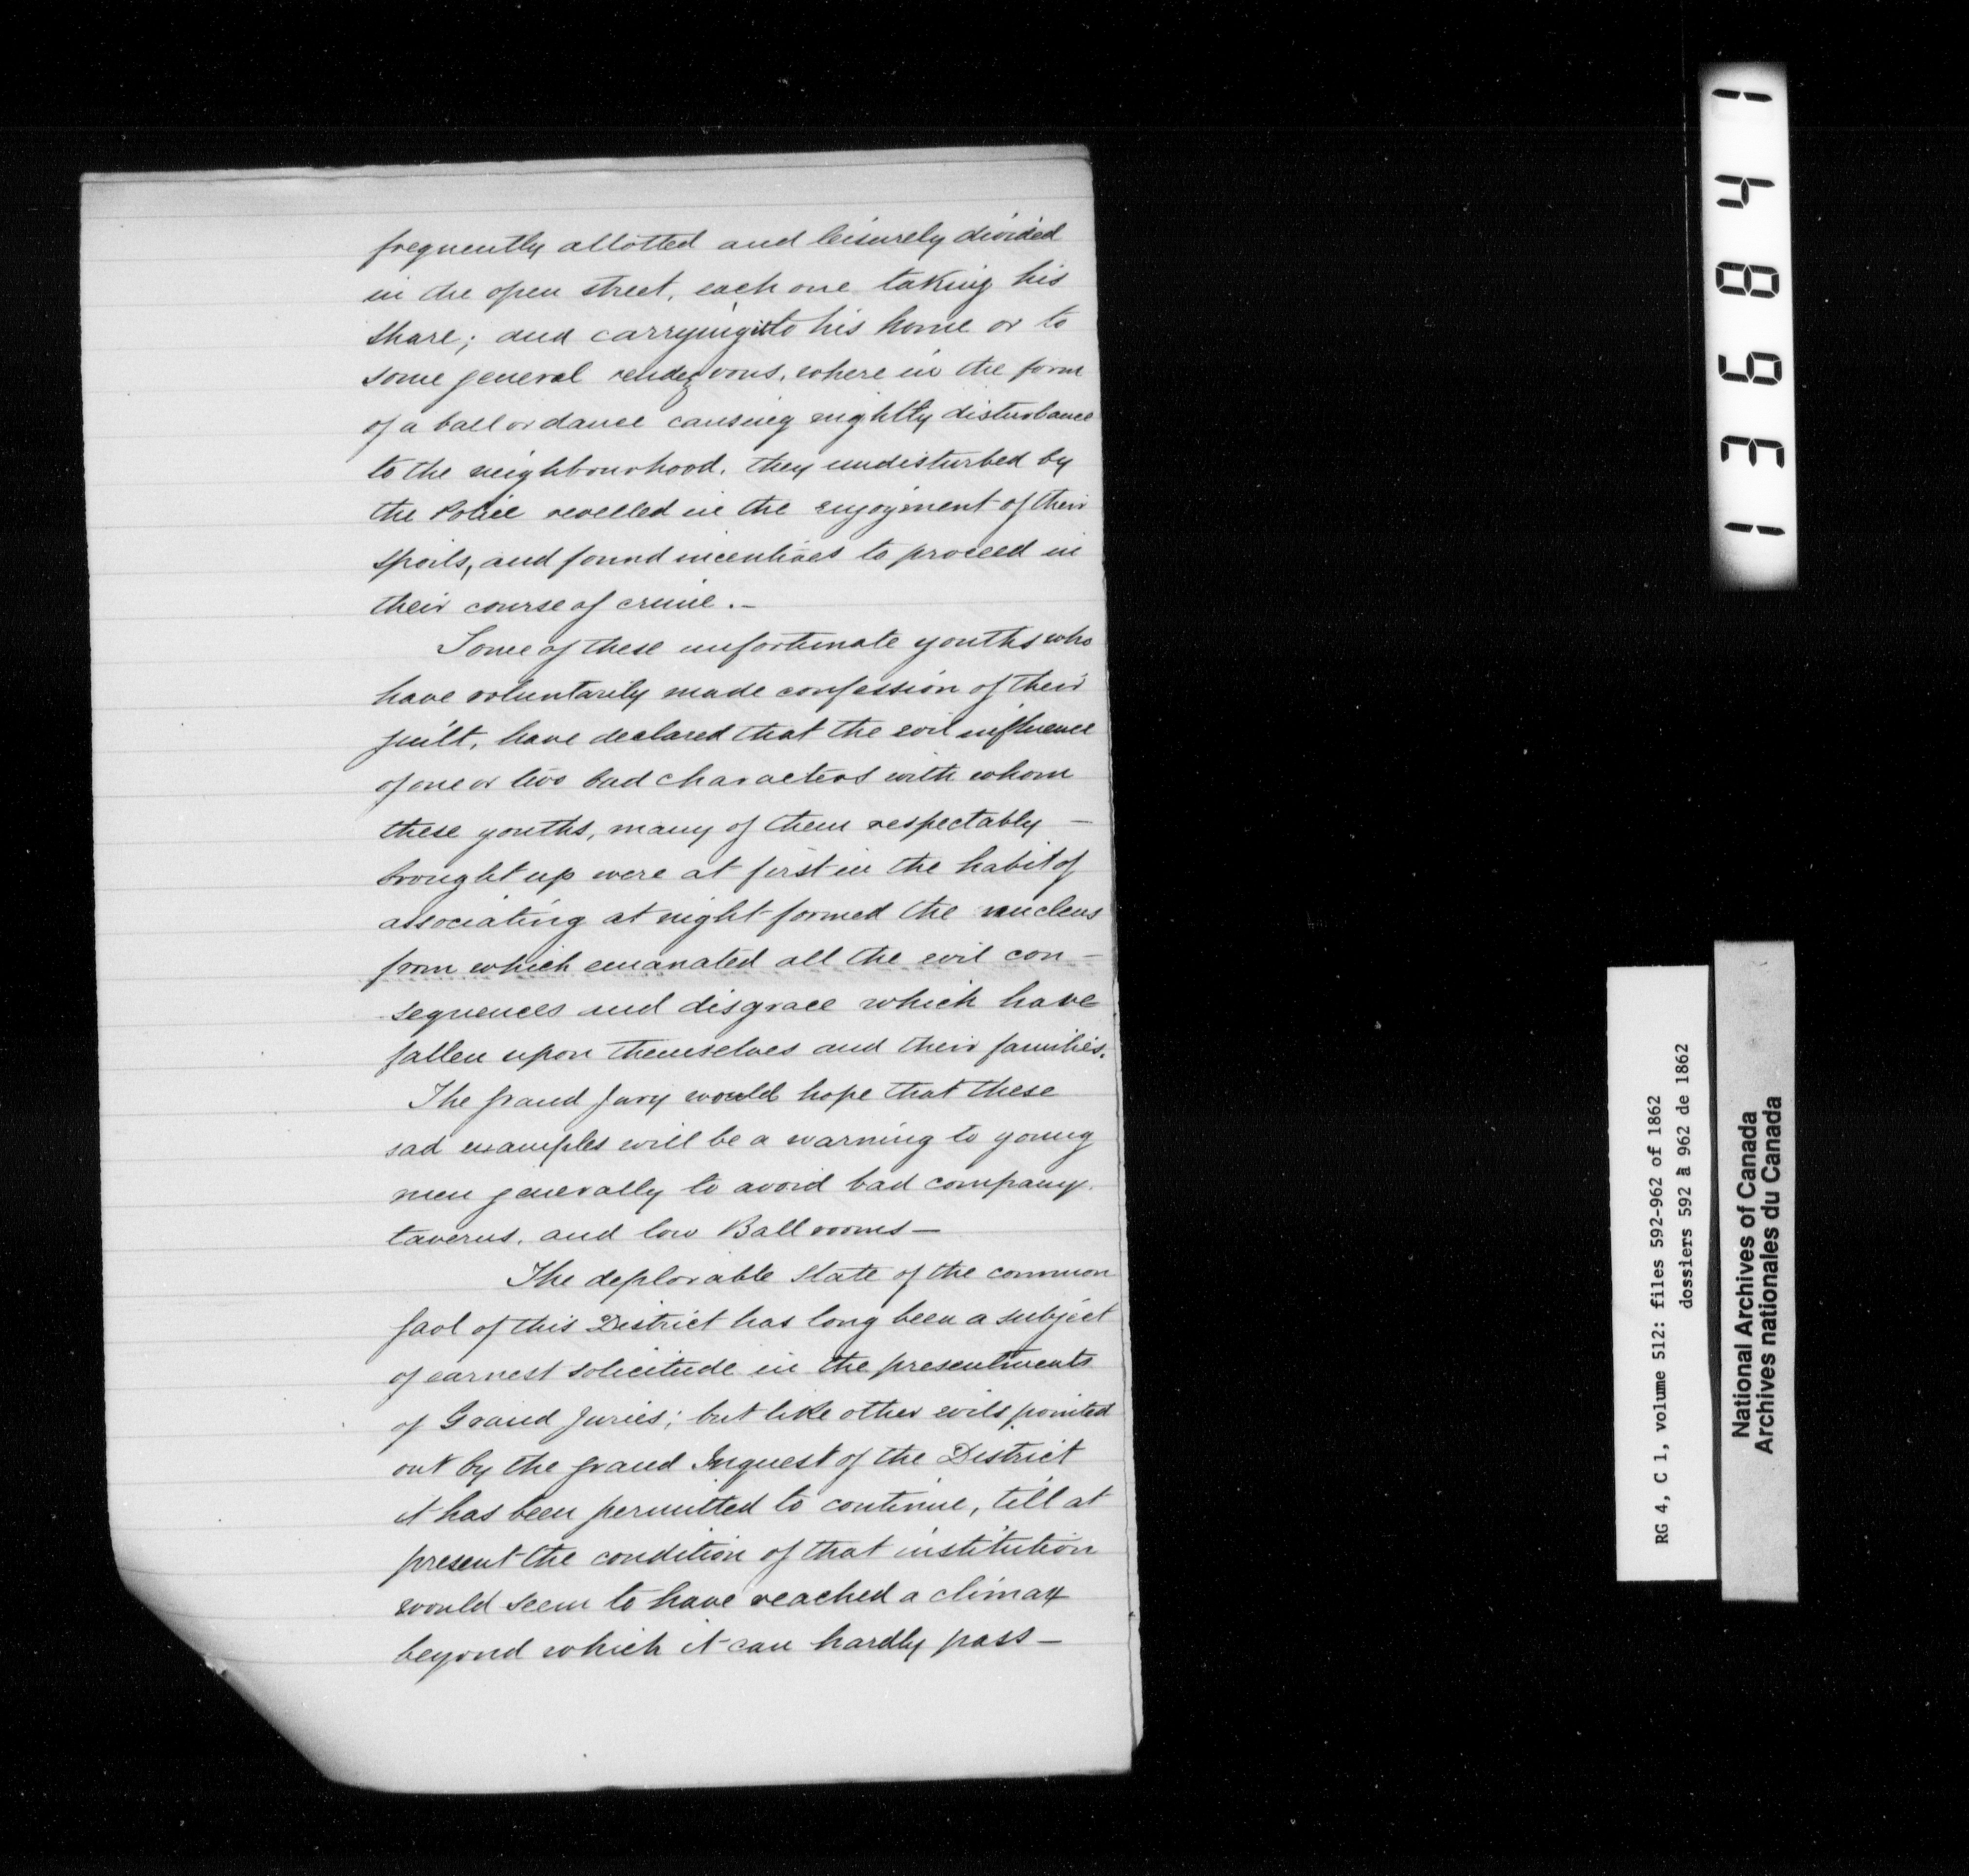 frequently allotted and leisurely divided
in the open street, each one taking his
share; and carrying it to his home or to
some general rendezvous, where in the form
of a ball or dance causing nightly disturbance
to the neighbourhood, they undisturbed by
the Police revelled in the enjoyment of their
spoils, and found incentives to proceed in
their course of crime.—
Some of these unfortunate youths who
have voluntarily made confession of their
guilt, have declared that the evil influence
of one or two bad characters with whom
these youths, many of them respectably —
brought up were at first in the habit of
associating at night formed the nucleus
from which emanated all the evil con-
sequences and disgrace which have
fallen upon themselves and their families.
The Grand Jury would hope that these
sad examples will be a warning to young
men generally to avoid bad company,
taverns, and low Ball rooms—
The deplorable state of the common
Gaol of this District has long been a subject
of earnest solicitude in the presentments
of Grand Juries; but like other evils pointed
out by the Grand Inquest of the District
it has been permitted to continue, till at
present the condition of that institution
would seem to have reached a climax
beyond which it can hardly pass—
136841
RG 4, C 1, volume 512: files 592-962 of 1862
dossiers 592 à 962 de 1862
National Archives of Canada
Archives nationales du Canada